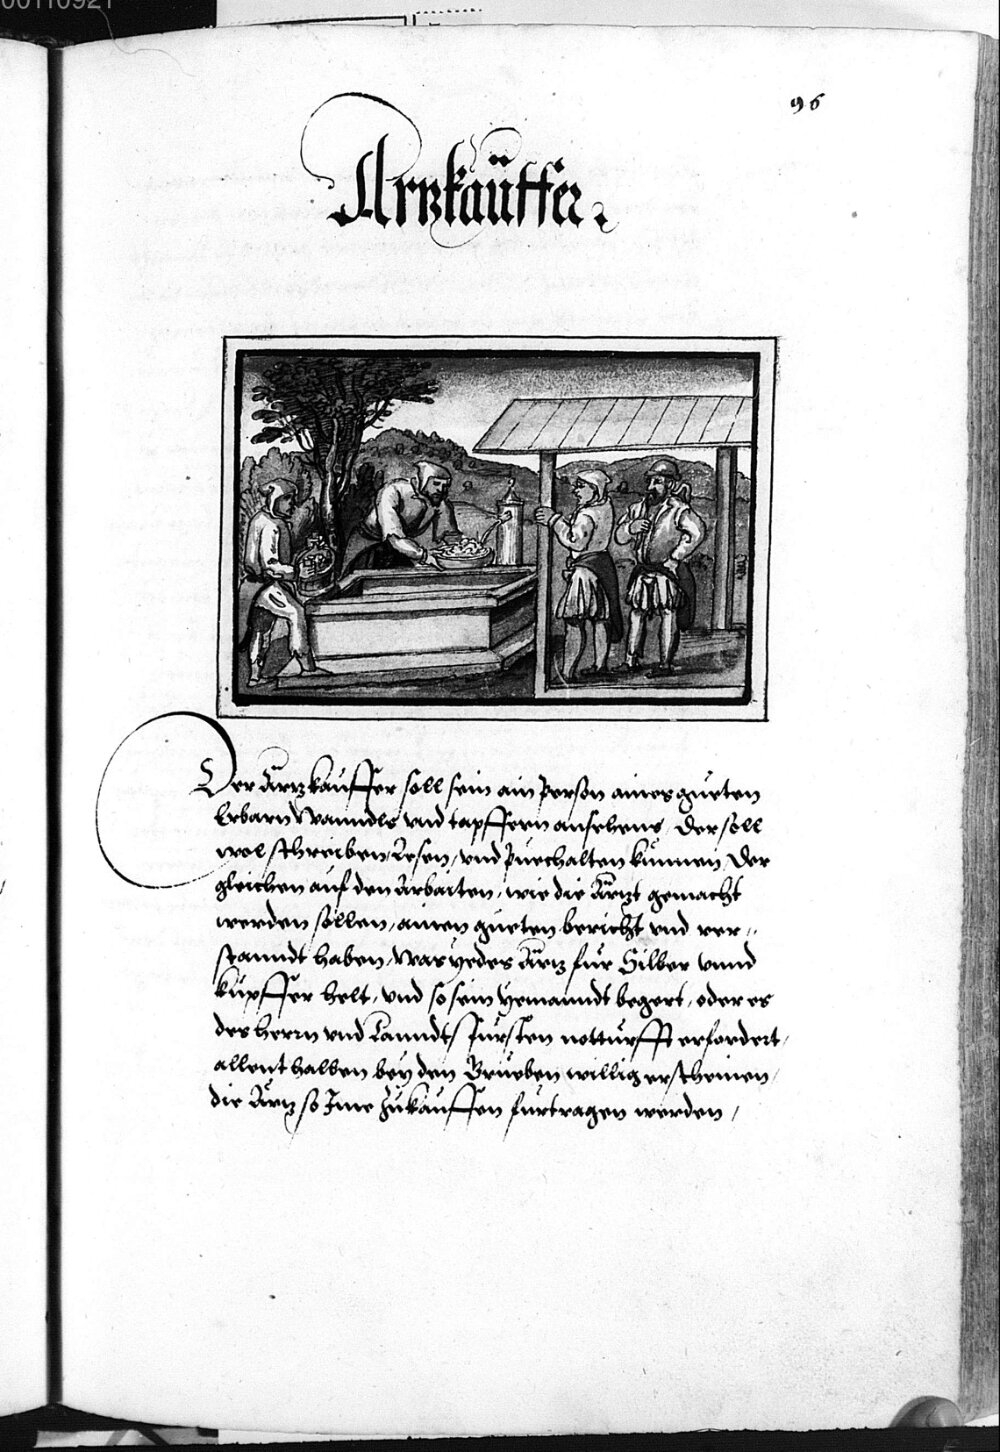 00110921
96
Artzkaüffer.
Der Ärtzkauffer soll sein ain person aines gueten
Erbarn Wanndls vnd tapffern ansehens, Der soll
wol schreiben, Lesen, vnd Puechalten kunnen, Der
gleichen auf den Arbaiten, wie die Ärtzt gemacht
werden sollen, ainen gueten bericht vnd ver=
stanndt haben, Was yedes Ärtz fur Silber vnnd
kupffer helt, vnd so sein yemanndt begert, oder es
des herrn vnd Lanndtsfursten notturfft erfordert,
allenthalben bey den Grueben willig erscheinen,
die Ärtz so Ime zukauffen furtragen werden,